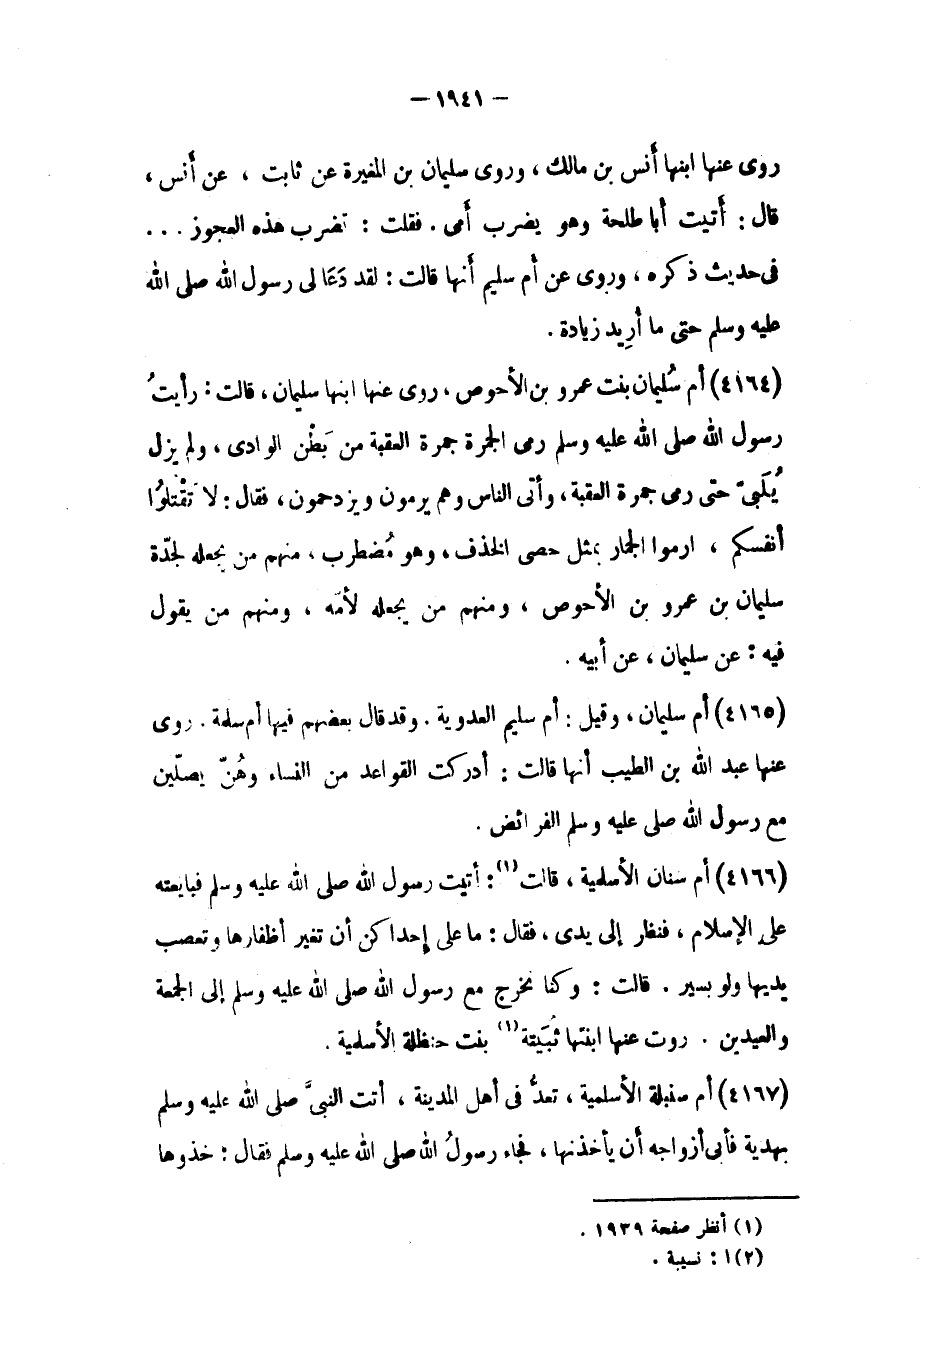 — ١٩٤١ —
روى عنها ابنها أَنس بن مالك ، وروى سليمان بن المغيرة عن ثابت ، عن أَنس ،
قال : أَتيت أبا طلحة وهو يضرب أَمى . فقلت : تضرب هذه العجوز . . .
فى حديث ذكره ، وروى عن أم سليم أَنها قالت : لقد دَعَا لى رسول الله صلى الله
عليه وسلم حتى ما أَرِيد زيادة .
(٤١٦٤) أم سُليمان بنت عمرو بن الأحوص ، روى عنها ابنها سليمان ، قالت : رأيتُ
رسول الله صلى الله عليه وسلم رمى الجمرة جمرة العقبة من بَطْن الوادى ، ولم يزل
يُلَبِىّ حتى رمى جمرة العقبة ، وأتى الناس وهم يرمون ويزدحمون ، فقال : لا تَقْتلُوا
أنفسكم ، ارموا الجمار بمثل حصى الخذف ، وهو مُضطرب ، منهم من يجعله لجدّة
سليمان بن عمرو بن الأحوص ، ومنهم من يجعله لأمّه ، ومنهم من يقول
فيه : عن سليمان ، عن أبيه .
(٤١٦٥) أم سليمان ، وقيل : أم سليم العدوية . وقد قال بعضهم فيها أم سلمة . روى
عنها عبد الله بن الطيب أنها قالت : أدركت القواعد من النساء وهُنّ يصلّين
مع رسول الله صلى عليه وسلم الفرائض .
(٤١٦٦) أم سنان الأسلمية ، قالت (١) : أتيت رسول الله صلى الله عليه وسلم فبايعته
على الإسلام ، فنظر إلى يدى ، فقال : ما على إحداكن أن تغير أظفارها وتعصب
يديها ولو بسير . قالت : وكنا نخرج مع رسول الله صلى الله عليه وسلم إلى الجمعة
والعيدين . روت عنها ابنتها ثُبَيتة (١) بنت حنظلة الأسلمية .
(٤١٦٧) أم سنبلة الأسلمية ، تعدُّ فى أهل المدينة ، أتت النبىَّ صلى الله عليه وسلم
بهدية فأبى أزواجه أن يأخذنها ، فجاء رسولُ الله صلى الله عليه وسلم فقال : خذوها
(١) أنظر صفحة ١٩٣٩ .
(٢) ا : نسيبة .